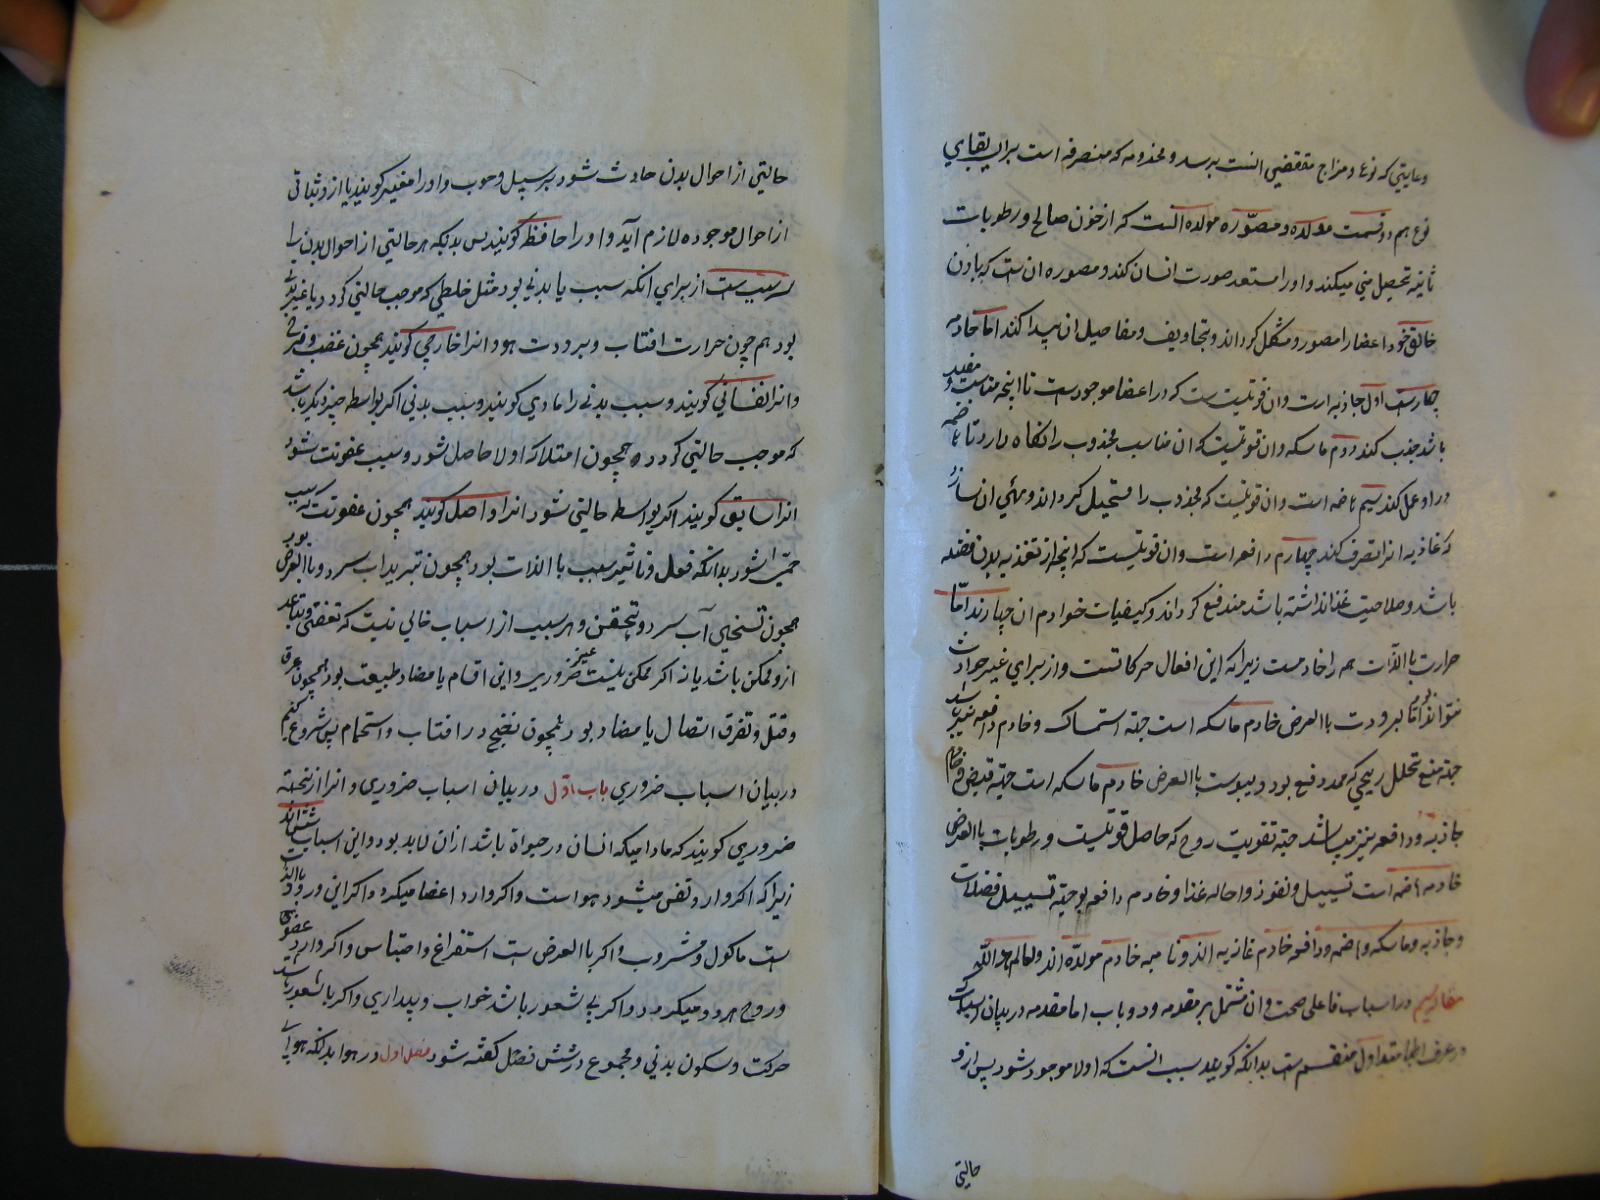 وغایتی که نوع و مزاج مقتضی انست برسد و مخدومه که متصرفه است برای بقای
نوع هم دو قسمت مولده و مصوّره مولده انست که از خون صالح و رطوبات
ثانیه تحصیل منی میکند و او را مستعد صورت انسان کند و مصوره ان ست که باذن
خالق خود اعضا را مصور و مشکل کرداند و تجاویف و مفاصیل ان پیدا کند اما خادمه
چهار ست اول جاذبه است و ان قوتیست که در اعضا موجود ست تا انچه مناسب و مفید
باشد جذب کند دوم ماسکه و ان قوتیست که ان مناسب مجذوب را نکاه دارد تا هاضمه
در او عمل کند سیم هاضمه است و ان قوتیست که مجذوب را مستحیل کرداند و مهیای ان سازد
که غاذیه انرا تصرف کند چهارم دافعه است و ان قوتیست که انچه از تغذیه بدن فضله
باشد و صلاحیت غذا نداشته باشد مندفع کرداند و کیفیات خوادم ان چهارند امّا
حرارت باالذّات همه را خادمست زیرا که این افعال حرکاتست و از برای غیر حرارت
نتواند بود امّا برودت باالعرض خادم ماسکه است جهة استمساک و خادم دافعه نیز باشد
جهة منع تحلل ریحی که ممد دفع بود و یبوست باالعرض خادم ماسکه است جهة قبض و خادم
جاذبه و دافعه نیز میباشد جهة تقویت روح که حاصل قوتیست و رطوبات باالعرض
خادمه هاضمه است تسییل و نفوذ و احاله غذا و خادم دافعه بو جهة تسییل فضلات
و جاذبه و ماسکه و هاضمه و دافعه خادم غاذیه اند و نامیه خادم مولدّه اند و العالم هو اللّه
مقاله سیم در اسباب فاعلی صحت و ان مشتمل بر مقدمه و دو باب اما مقدمه در بیان اسباب
در عرف اطبا متداول منقسم ست بدانکه کویند سبب انست که اولا موجود شود پس از و
حالتی
حالتی از احوال بدن حادث شود بر سبیل وجوب و او را مغیر کویند یا از و ثباتی
از احوال موجوده لازم آید و او را حافظ کویند پس بدانکه هر حالتی از احوال بدن را
سببیست از برای انکه سبب یا بدنی بود مثل خلطی که موجب حالتی کردد یا غیر بدنی
بود هم چون حرارت افتاب و برودت هوا و انرا خارجی کویند همچون غضب و فرح
و انرا نفسانی کویند و سبب بدنی را مادی کویند و سبب بدنی اکر بواسطه چیز دیکر باشد
که موجب حالتی کردد همچون امتلا که اولا حاصل شود و سبب عفونت شود
انرا سابق کویند اکر بواسطه حالتی شود انرا واصل کویند همچون عفونت که سبب
حمّی شود بدانکه فعل و تاثیر سبب باالذات بود همچون تبرید اب سرد و باالعرض بود
همچون تسخین آب سرد و تحقن و هر سبب از اسباب خالی نیست که تفصّی و تباعد
از و ممکن باشد یا نه اکر ممکن نیست ضروری و غیر ضروری و این اقسام یا مضاد طبیعت بود همچون غرق
و قتل و تفرق اتصال یا مضاد بود همچون نضج در افتاب و استحمام پس شروع کنیم
در بیان اسباب ضروری باب اوّل در بیان اسباب ضروری و انرا از نجهة
ضروری کویند که مادامیکه انسان در حیواة باشد از ان لابد بود و این اسباب ششاند
زیرا که اکر وارد و تفس میشود هواست و اکر وارد اعضا میکردد اکر این ورود باالذات
ست ماکول و مشروب و اکر باالعرض ست استفراغ و احتباس و اکر وارد عضو
و روح هردو میکردد و اکر بی شعور باشد خواب و بیداری و اکر باشعور باشد
حرکت و سکون بدنی و مجموع در شش فصل کفته شود فصل اول در هوا بدانکه هوای